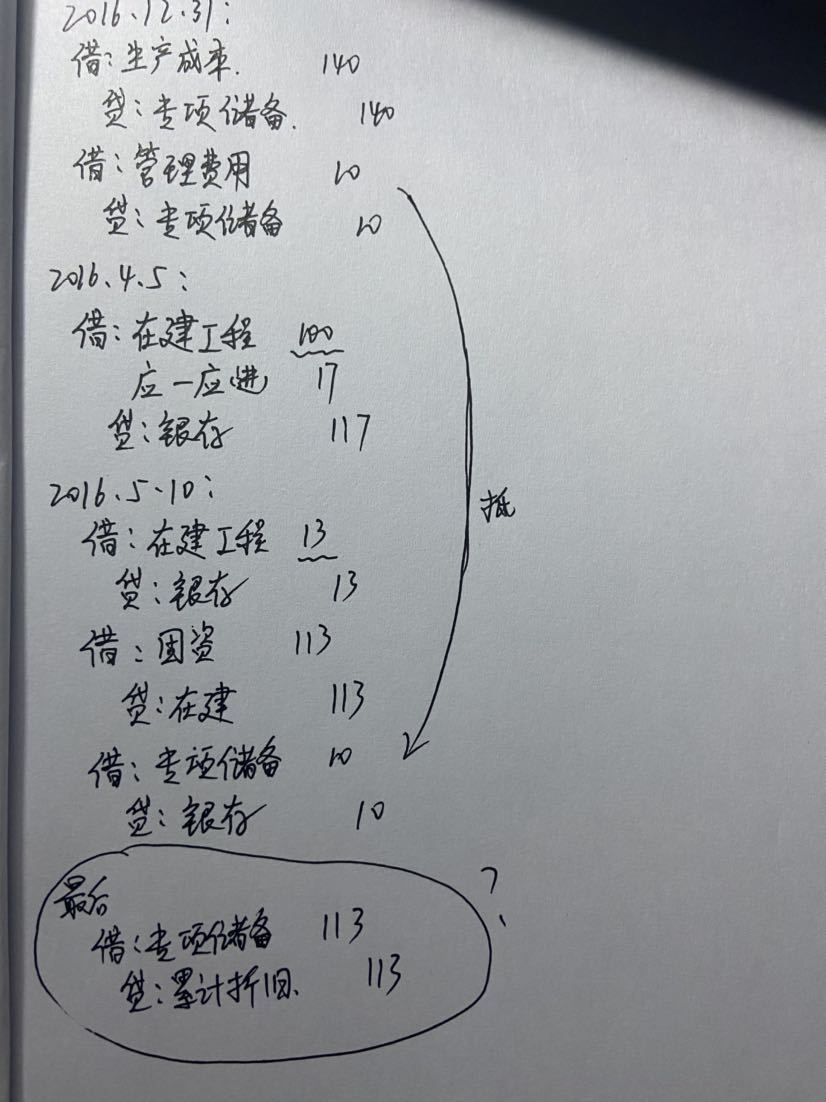 2016.12.31：
借：生产成本. 140
贷：专项储备. 140
借：管理费用 10
贷：专项储备 10
2016.4.5：
借：在建工程 100
应一应进 17
贷：银存 117
2016.5.10：
抵
借：在建工程 13
贷：银存 13
借：固资 113
贷：在建 113
借：专项储备 10
贷：银存 10
?
最后
借：专项储备 113
贷：累计折旧. 113